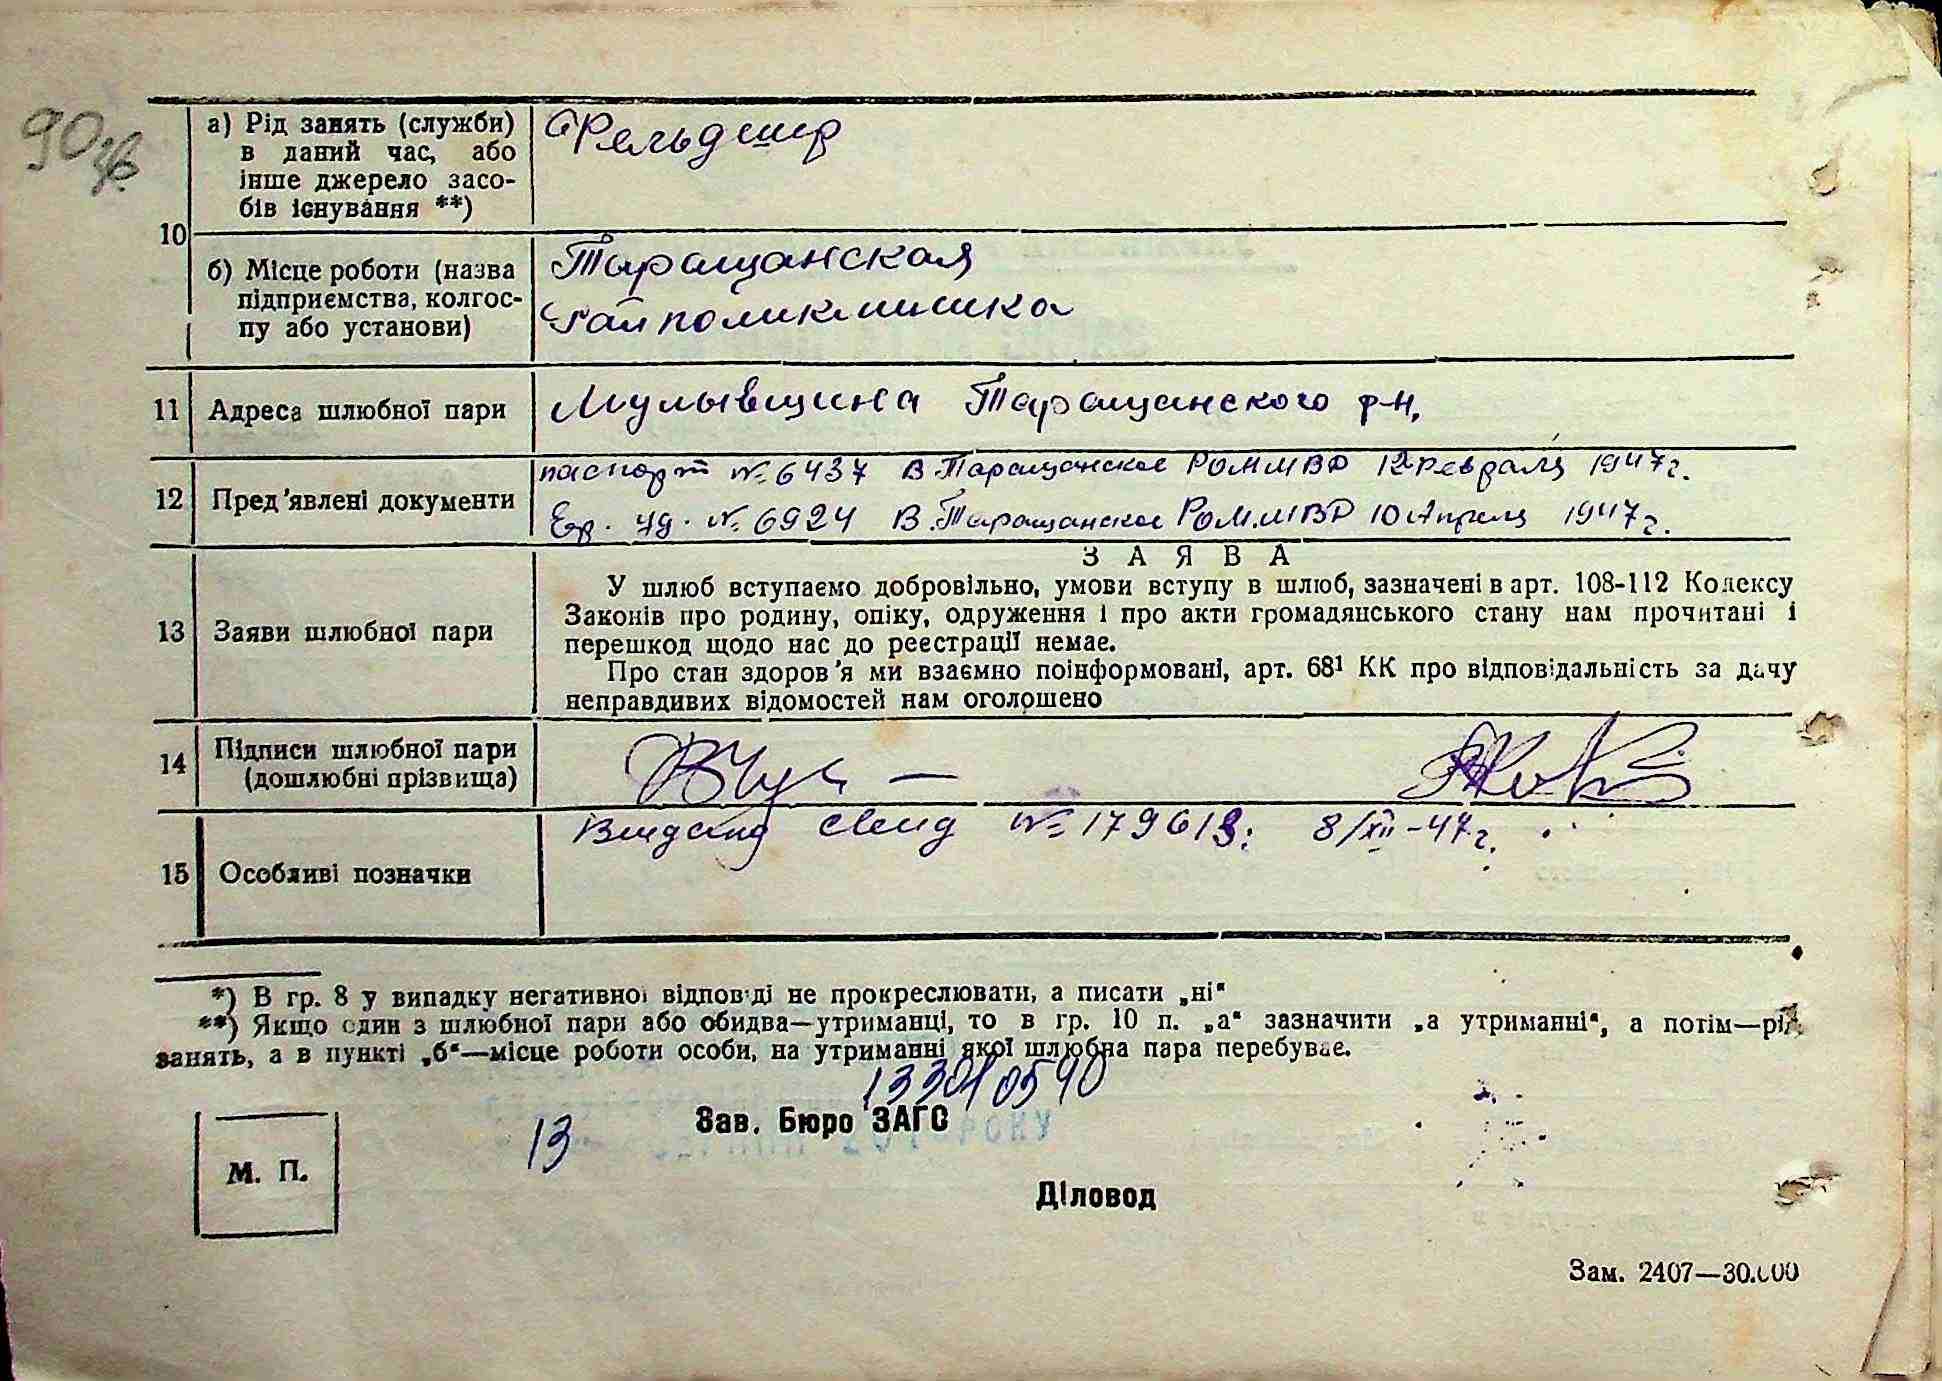 90 зв.
10
а) Рід занять (служби)
в даний час, або
інше джерело засо-
бів існування **)
Фельдшер
б) Місце роботи (назва
підприємства, колгос-
пу або установи)
Таращанская
Райполиклиника
11 Адреса шлюбної пари
Лукывщина Таращанского р-н.
12 Пред'явлені документи
паспорт № 6437 В. Таращанское РОММВД 12 Февраля 1947 г.
Вр. уд. № 6924 В. Таращанское РОМ.МВД 10 Апреля 1947 г.
13 Заяви шлюбної пари
ЗАЯВА
У шлюб вступаємо добровільно, умови вступу в шлюб, зазначені в арт. 108-112 Кодексу
Законів про родину, опіку, одруження і про акти громадянського стану нам прочитані і
перешкод щодо нас до реєстрації немає.
Про стан здоров'я ми взаємно поінформовані, арт. 68¹ КК про відповідальність за дачу
неправдивих відомостей нам оголошено
14 Підписи шлюбної пари
(дошлюбні прізвища)
15 Особливі позначки
№ 179613: 8/XII-47 г.
*) В гр. 8 у випадку негативної відповіді не прокреслювати, а писати „ні“
**) Якщо один з шлюбної пари або обидва—утриманці, то в гр. 10 п. „а“ зазначити „а утриманні“, а потім—рід
занять, а в пункті „б“—місце роботи особи, на утриманні якої шлюбна пара перебуває.
13301 0590
Зав. Бюро ЗАГС
13
М. П.
Діловод
Зам. 2407—30.000